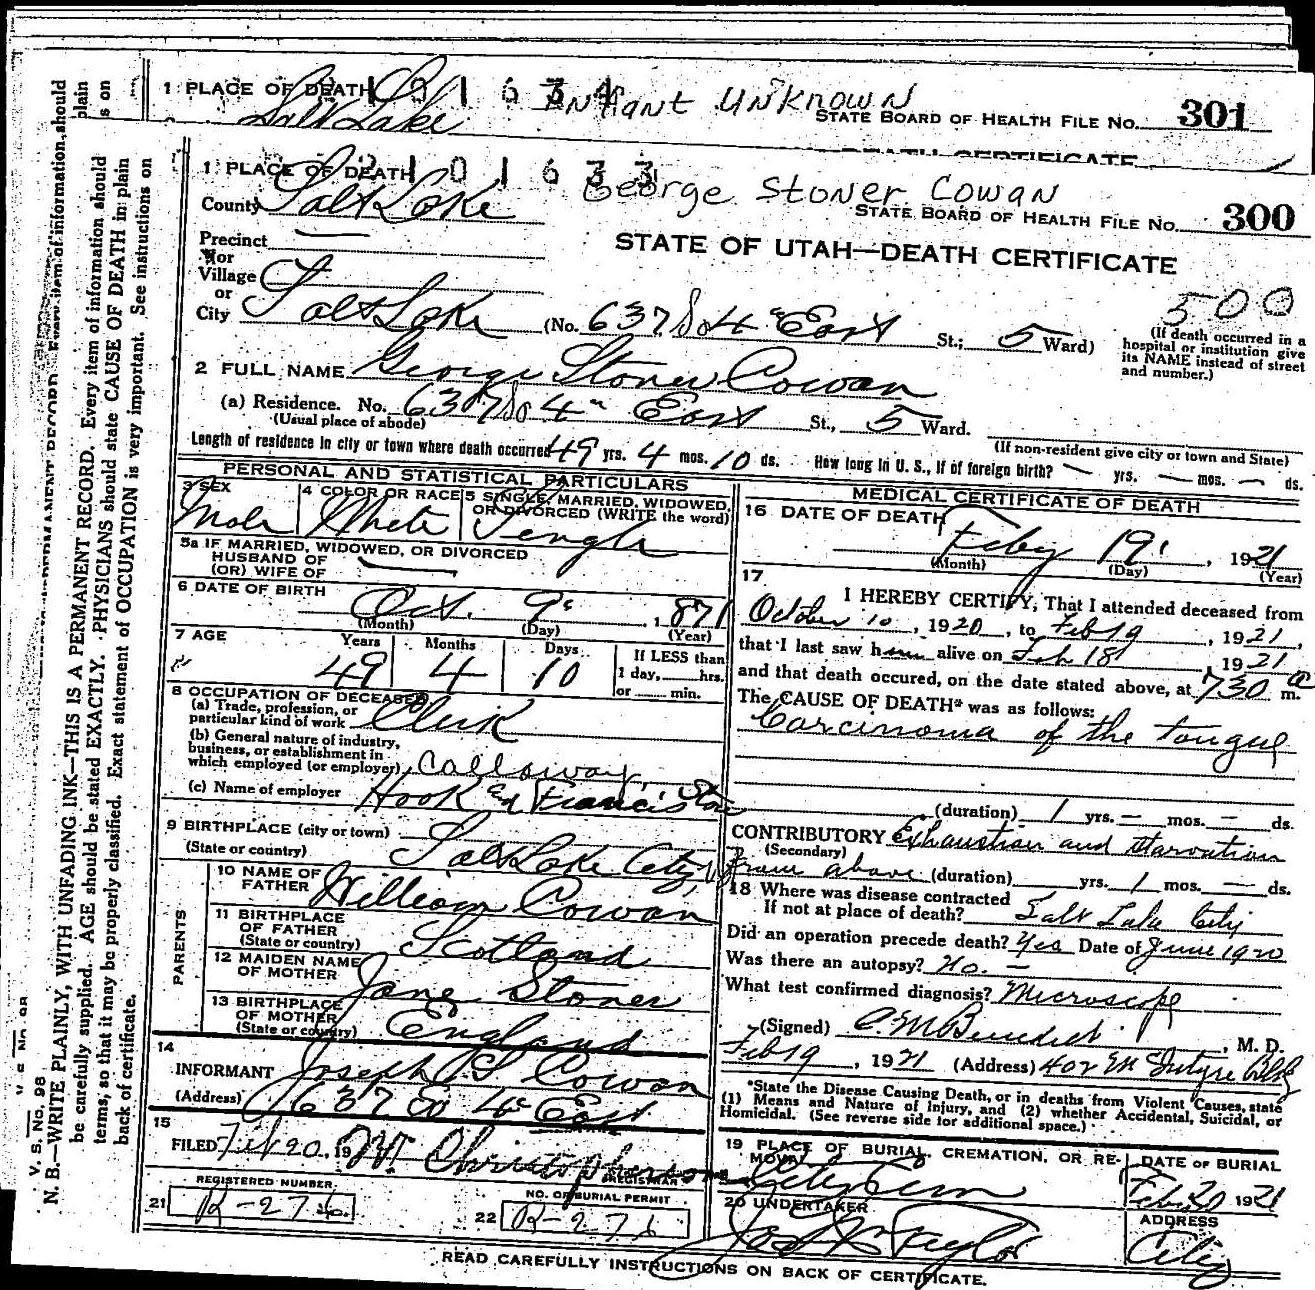 1 PLACE OF DEATH
Salt Lake
Infant Unknown
STATE BOARD OF HEALTH FILE NO. 301
DEATH CERTIFICATE
1 PLACE OF DEATH
2101633
George Stoner Cowan
County Salt Lake
STATE BOARD OF HEALTH FILE NO. 300
Precinct
or
Village
STATE OF UTAH—DEATH CERTIFICATE
500
or
City Salt Lake (No. 637 So 4th East St.; 5 Ward)
(If death occurred in a
hospital or institution give
its NAME instead of street
and number.)
2 FULL NAME George Stoner Cowan
(a) Residence. No. 637 So 4th East St., 5 Ward.
(Usual place of abode)
(If non-resident give city or town and State)
Length of residence in city or town where death occurred 49 yrs. 4 mos. 10 ds. How long in U. S., if of foreign birth? — yrs. — mos. — ds.
PERSONAL AND STATISTICAL PARTICULARS
3 SEX
Male
4 COLOR OR RACE
White
5 SINGLE, MARRIED, WIDOWED,
OR DIVORCED (WRITE the word)
Single
5a IF MARRIED, WIDOWED, OR DIVORCED
HUSBAND OF
(OR) WIFE OF
6 DATE OF BIRTH
Oct. 9 1871
(Month) (Day) (Year)
7 AGE
Years Months Days
49 4 10
If LESS than
1 day, hrs.
or min.
8 OCCUPATION OF DECEASED
(a) Trade, profession, or
particular kind of work Clerk
(b) General nature of industry,
business, or establishment in
which employed (or employer) Calloway,
(c) Name of employer Hook and Francis
9 BIRTHPLACE (city or town)
(State or country) Salt Lake City,
PARENTS
10 NAME OF
FATHER William Cowan
11 BIRTHPLACE
OF FATHER
(State or country) Scotland
12 MAIDEN NAME
OF MOTHER Jane Stoner
13 BIRTHPLACE
OF MOTHER
(State or country) England
14
INFORMANT Joseph S Cowan
(Address) 637 So 4th East
15
FILED Feb 20, 19 Christopherson
REGISTRAR
REGISTERED NUMBER.
21 R-276
NO. OF BURIAL PERMIT
22 R-276
MEDICAL CERTIFICATE OF DEATH
16 DATE OF DEATH
Feby 19, 1921
(Month) (Day) (Year)
17
I HEREBY CERTIFY, That I attended deceased from
October 10, 1920, to Feb 19, 1921,
that I last saw him alive on Feb 18, 1921
and that death occured, on the date stated above, at 730 a m.
The CAUSE OF DEATH* was as follows:
Carcinoma of the tongue
(duration) 1 yrs. — mos. — ds.
CONTRIBUTORY Exhaustion and starvation
(Secondary)
from above (duration) yrs. 1 mos. — ds.
18 Where was disease contracted
If not at place of death? Salt Lake City
Did an operation precede death? Yes Date of June 1920
Was there an autopsy? No. —
What test confirmed diagnosis? Microscope
(Signed) Benedict, M. D.
Feb 19, 1921 (Address) 402 McIntyre Bldg
*State the Disease Causing Death, or in deaths from Violent Causes, state
(1) Means and Nature of Injury, and (2) whether Accidental, Suicidal, or
Homicidal. (See reverse side for additional space.)
19 PLACE OF BURIAL, CREMATION, OR RE-
MOVAL City Cem
DATE OF BURIAL
Feb 20 1921
20 UNDERTAKER
Taylor
ADDRESS
City
READ CAREFULLY INSTRUCTIONS ON BACK OF CERTIFICATE.
V. S. No. 98
N. B.—WRITE PLAINLY, WITH UNFADING INK—THIS IS A PERMANENT RECORD. Every item of information should
be carefully supplied. AGE should be stated EXACTLY. PHYSICIANS should state CAUSE OF DEATH in plain
terms, so that it may be properly classified. Exact statement of OCCUPATION is very important. See instructions on
back of certificate.